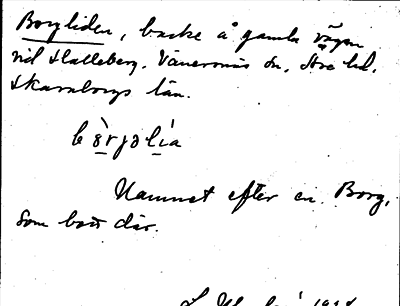 Borgliden, backe å gamla vägen
vid Halleberg, Vänersnäs sn, Åse hd,
Skaraborgs län.
bo᷆rjəli̇́a
Namnet efter en Borg,
som bott där.